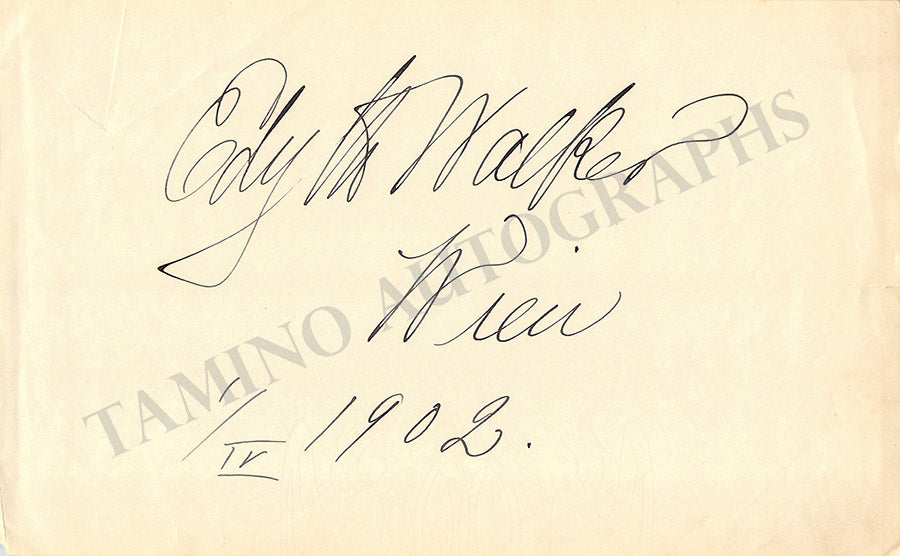 Edyth Walker
Wien
1/IV 1902.
TAMINO AUTOGRAPHS